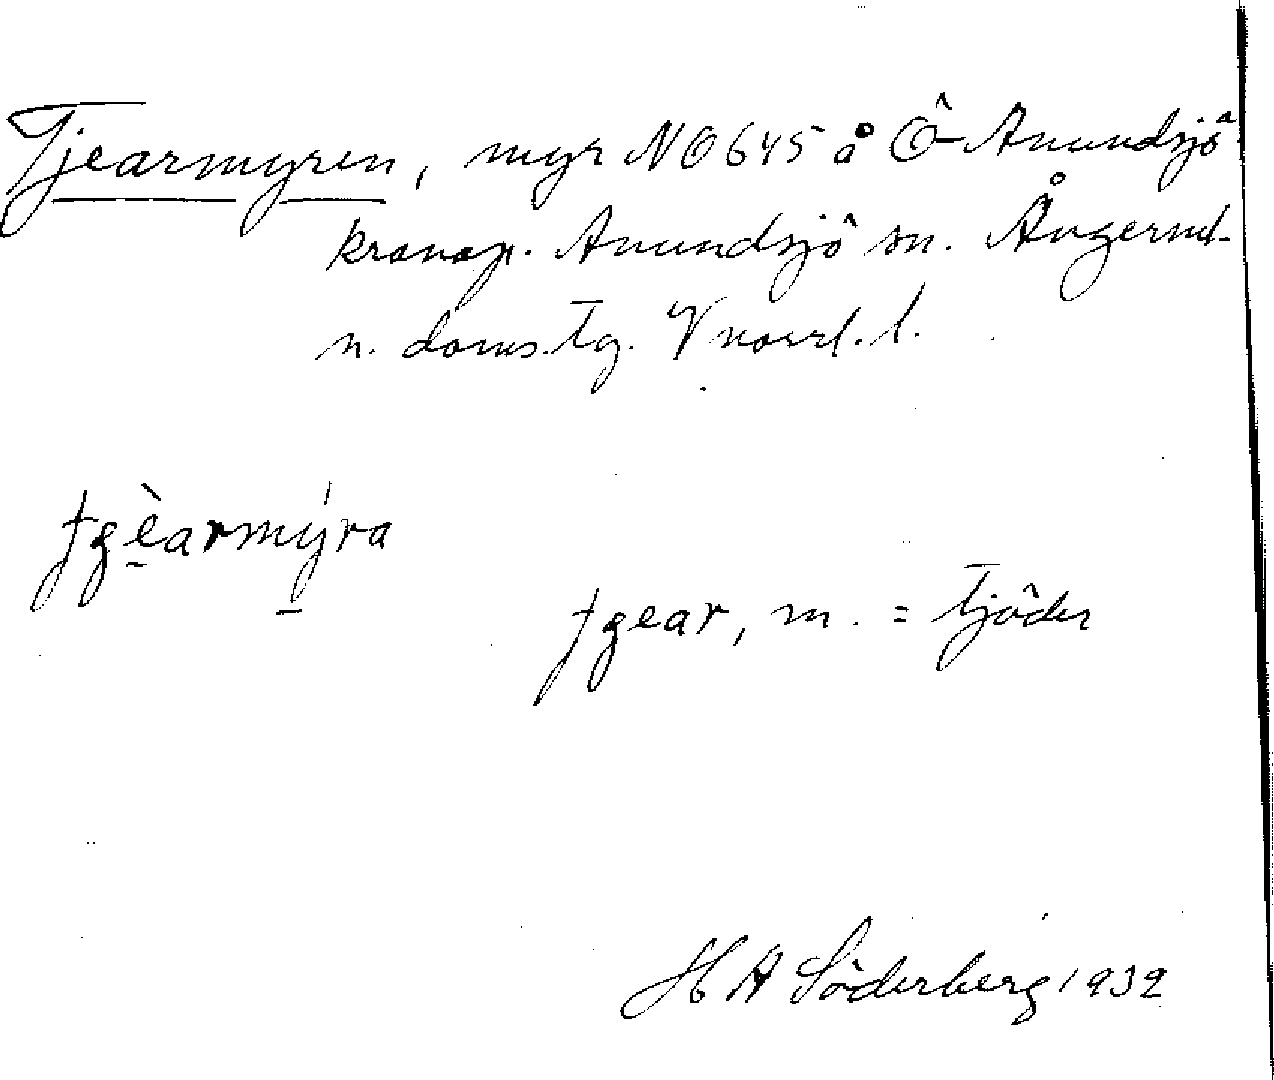 Tjearmyren, myr NO 645 å Ö-Anundsjö
kronop. Anundsjö sn. Ångerml.
n. doms. tg. Vnorrl. l.
tʃèarmýra
tʃear, m. = tjäder
H A Söderberg 1932